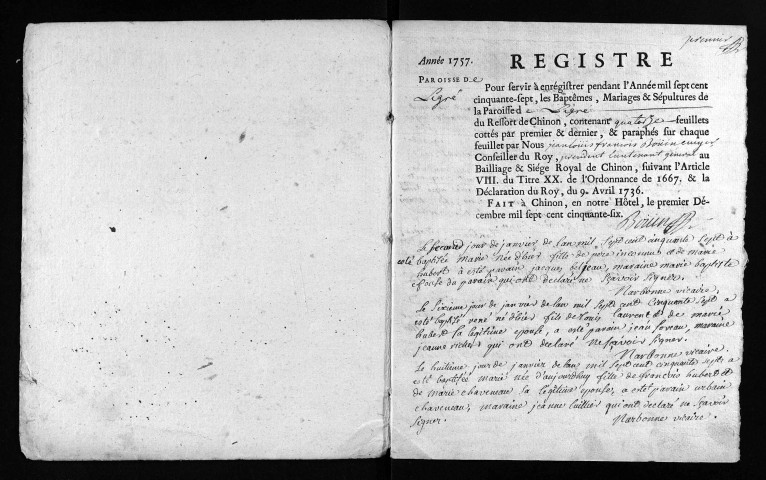 premier
Année 1757.
REGISTRE
PAROISSE D e
Ligré
Pour servir à enrégistrer pendant l'Année mil sept cent
cinquante-sept, les Baptêmes, Mariages & Sépultures de
la Paroisse d e Ligré
du Ressort de Chinon, contenant quatorze feuillets
cottés par premier & dernier, & paraphés sur chaque
feuillet par Nous jean louis françois
Conseiller du Roy, president lieutenant général au
Bailliage & Siége Royal de Chinon, suivant l'Article
VIII. du Titre XX. de l'Ordonnance de 1667. & la
Déclaration du Roy, du 9. Avril 1736.
FAIT à Chinon, en notre Hôtel, le premier Dé-
cembre mil sept cent cinquante-six.
Le second jour de janvier de lan mil sept cent cinquante sept à
esté baptisée marie née d'hier fille de pere inconnut et de marie
imbert à esté parain jacques beljeau, maraine marie baptiste
epouse du parain qui ont declaré ne sçavoir signer.
Narbonne vicaire.
Le sixieme jour de janvier de lan mil sept cent cinquante sept a
esté baptisé rené né d'hier fils de louis laurent et de marie
hubert sa legitime epouse, a esté parain jean moreau, maraine
jeanne riche qui ont declaré ne sçavoir signer.
Narbonne vicaire.
Le huitieme jour de janvier de lan mil sept cent cinquante sept a
esté baptisée marie née d'aujourdhuy fille de francois hubert et
de marie chaveneau sa legitime epouse, a esté parain urbain
chaveneau, maraine jeanne luillier qui ont declaré ne sçavoir
signer.
Narbonne vicaire.